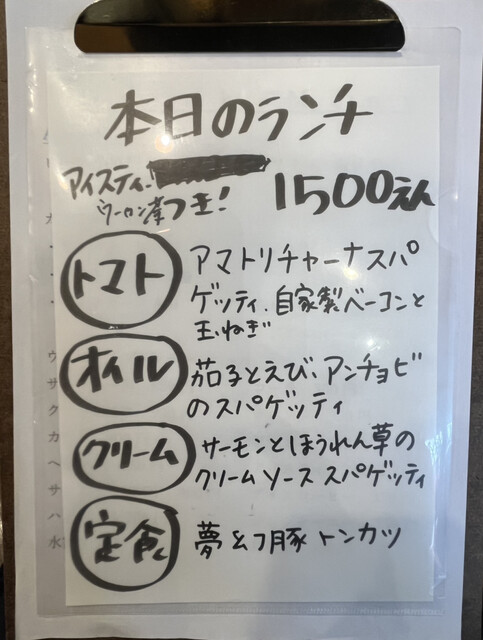 本日のランチ
アイスティ.
ウーロン茶つき!
1500えん
トマト
アマトリチャーナスパ
ゲッティ.自家製ベーコンと
玉ねぎ
オイル
茄子とえび、アンチョビ
のスパゲッティ
クリーム
サーモンとほうれん草の
クリームソース スパゲッティ
定食
夢 豚トンカツ
ウ
サ
ク
カ
ヘ
サ
ハ
水